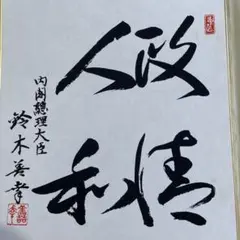 政清
人和
内閣總理大臣
鈴木善幸